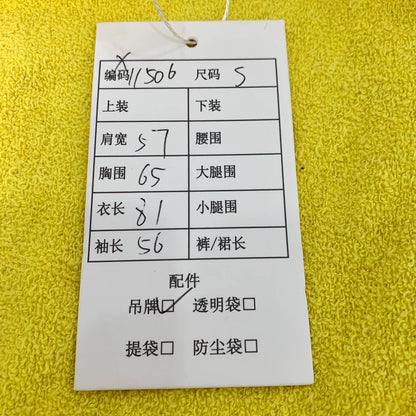 编码 X11506 尺码 S
上装 下装
肩宽 57 腰围
胸围 65 大腿围
衣长 81 小腿围
袖长 56 裤/裙长
配件
吊牌☑ 透明袋□
提袋□ 防尘袋□